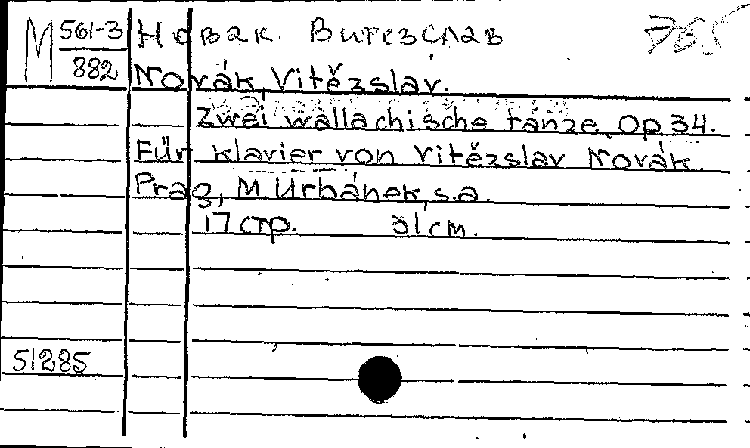 М 561-3
882
Новак. Витезслав
765
Novák, Vitězslav.
Zwei wallachische tänze. Op 34.
Für Klavier von Vitězslav Novák.
Prag, M Urbánek, s.a.
17 стр. 31 см.
51285